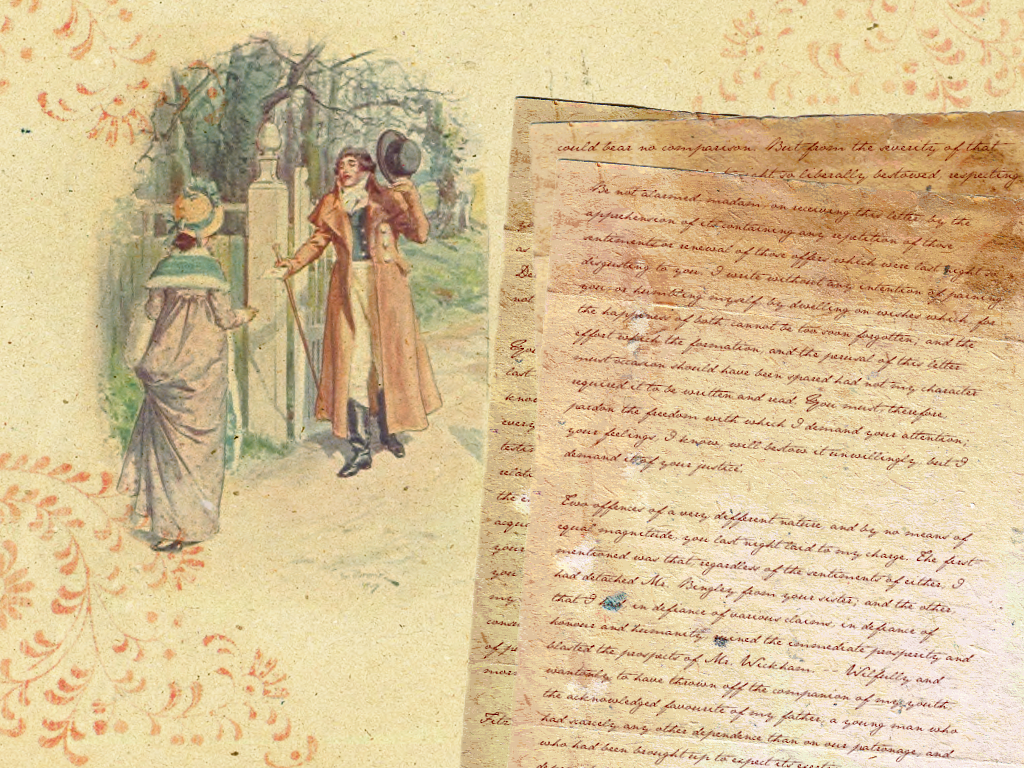 could bear no comparison. But from the severity of that
ght so liberally bestowed, respecting
Be not alarmed, madam, on receiving this letter, by the
apprehension of its containing any repetition of those
sentiments or renewal of those offers which were last night so
disgusting to you. I write without any intention of paining
you, or humbling myself, by dwelling on wishes which, for
the happiness of both, cannot be too soon forgotten; and the
effort which the formation, and the perusal of this letter
must occasion should have been spared had not my character
required it to be written and read. You must, therefore,
pardon the freedom with which I demand your attention;
your feelings, I know, will bestow it unwillingly, but I
demand it of your justice.
Two offences of a very different nature, and by no means of
equal magnitude, you last night laid to my charge. The first
mentioned was that regardless of the sentiments of either, I
had detached Mr. Bingley from your sister; and the other,
that I had, in defiance of various claims, in defiance of
honour and humanity, ruined the immediate prosperity and
blasted the prospects of Mr. Wickham. -- Wilfully and
wantonly to have thrown off the companion of my youth,
the acknowledged favourite of my father, a young man who
had scarcely any other dependence than on our patronage, and
who had been brought up to expect its
as
not
You
last
know
every
the
your
you
my
of
more
Fitz